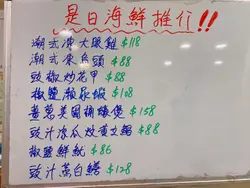 是日海鮮推介!!
潮式凍大眼雞 $118
潮式凍烏頭 $88
豉椒炒花甲 $88
椒鹽瀨尿蝦 $108
薑蔥美國桶蠔煲 $158
豉汁涼瓜炆黃立鯧 $88
椒鹽鮮魷 $86
豉汁蒸白鱔 $128